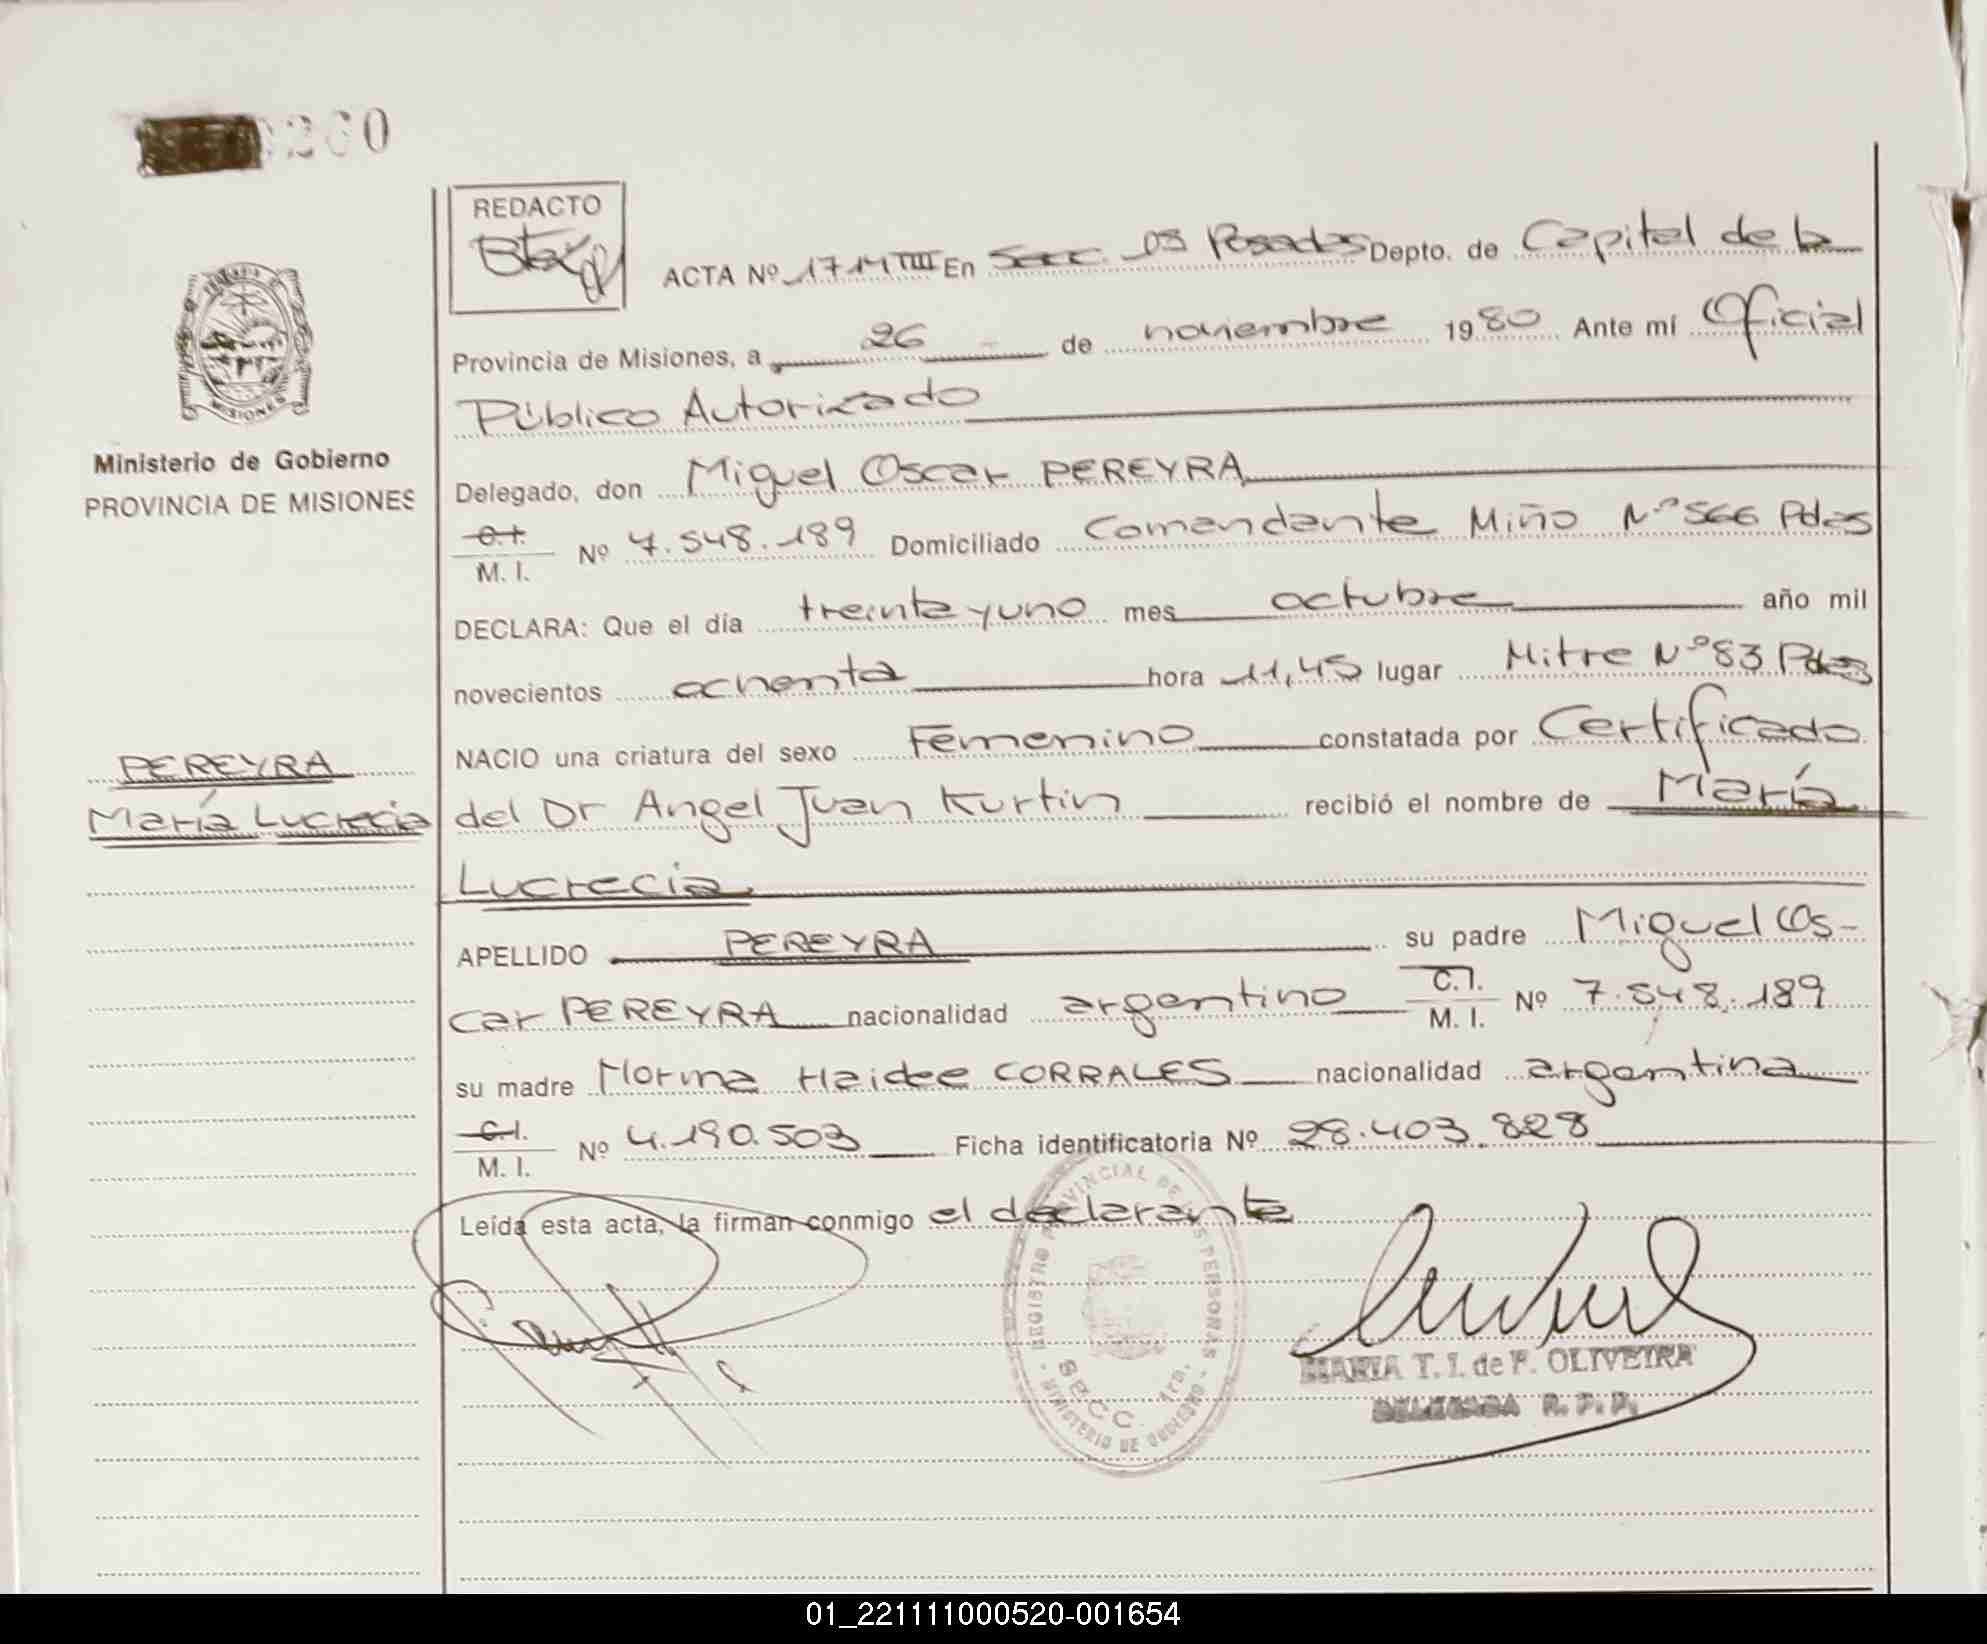 260
REDACTO
ACTA Nº 1714 TIIII En Secc. 03 Posadas Depto. de Capital de la
Provincia de Misiones, a 26 de noviembre 1980 Ante mí Oficial
Público Autorizado
MISIONES
Ministerio de Gobierno
PROVINCIA DE MISIONES
Delegado, don Miguel Oscar PEREYRA
C.I.
M. I. Nº 7.548.189 Domiciliado Comandante Miño Nº 566 Pdas
DECLARA: Que el día treinta y uno mes octubre año mil
novecientos ochenta hora 11,45 lugar Mitre Nº 83 Pdas
NACIO una criatura del sexo Femenino constatada por Certificado
PEREYRA
María Lucrecia
del Dr Angel Juan Kurtin recibió el nombre de María
Lucrecia
APELLIDO PEREYRA su padre Miguel Os-
car PEREYRA nacionalidad argentino C.I. M. I. Nº 7.548.189
su madre Norma Haidee CORRALES nacionalidad argentina
C.I.
M. I. Nº 4.190.503 Ficha identificatoria Nº 28.403.828
Leída esta acta, la firman conmigo el declarante
REGISTRO PROVINCIAL DE LAS PERSONAS
SECC. 1ra.
MINISTERIO DE GOBIERNO
MARIA T. I. de F. OLIVEIRA
DELEGADA R. P. P.
01_221111000520-001654